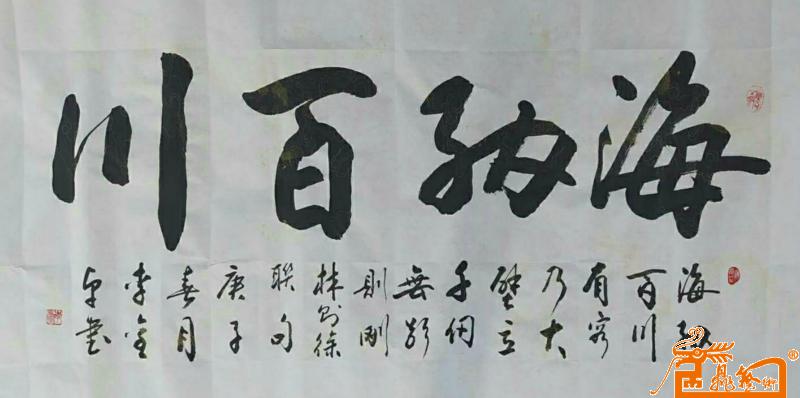 海纳百川
海纳
百川
有容
乃大
壁立
千仞
無欲
則剛
林则徐
聯句
庚子
春月
李金
卓書